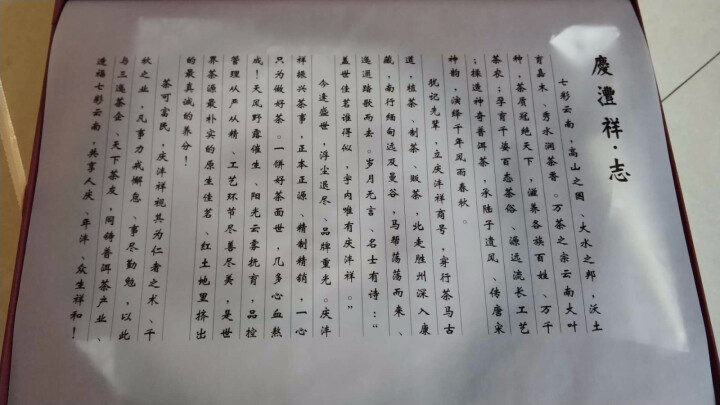 慶灃祥·志
七彩云南,高山之国、大水之邦,沃土
育嘉木、秀水润茶香。万茶之宗云南大叶
种,茶质冠绝天下,滋养各族百姓、万千
茶农;孕育千姿百态茶俗、源远流长工艺
;揉造神奇普洱茶,承陆子遗风、传唐宋
神韵,演绎千年风雨春秋。
犹记先辈,立庆沣祥商号,穿行茶马古
道,植茶、制茶、贩茶,北走胜州深入康
藏,南行缅甸远及曼谷,马帮荡荡而来、
逶迤踏歌而去。岁月无言、名士有诗:“
盖世佳茗谁得似,宇内唯有庆沣祥。”
今逢盛世,浮尘退尽、品牌重光。庆沣
祥振兴茶事,正本正源、精制精销,一心
只为做好茶。一饼好茶面世,几多心血熬
成!天风野露催生、阳光云雾抚育,品控
管理从严从精、工艺环节尽善尽美,是世
界茶源最朴实的原生佳茗、红土地里挤出
的最真诚的养分!
茶可富民,庆沣祥视其为仁者之术、千
秋之业,凡事力戒懈怠、事尽勤勉,以此
与三迤茶企、天下茶友,同铸普洱茶产业、
造福七彩云南,共享人庆、年沣、众生祥和!